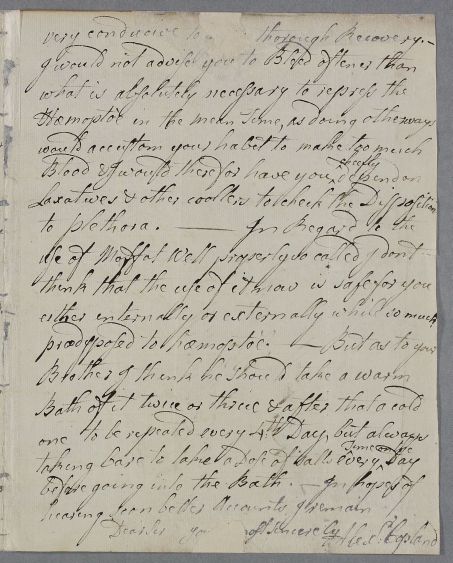 very conducive to thorough Recovery. —
I would not advise you to Bleed oftener than
what is absolutely necessary to repress the
Hæmoptöe in the mean time, as doing otherways
would accustom your habet to make too much
Blood & I would therefor have you cheifly depend on
Laxatives & other coollers to check the Disposition
to plethora. — In Regard to the
use of Moffat Well properly so called I dont
think that the use of it now is safe for you
either internally or externally while so much
prædisposed to hæmoptöe. — But as to your
Brother I think he should take a warm
Bath of it twice or thrice & after that a cold
one to be repeated every 4th Day, but always
taking Care to take a Dose of Salts every Time the Day
before going into the Bath. — In hopes of
hearing soon better Accounts, I remain
Dear Sir yo most sincerely Alexr Copland